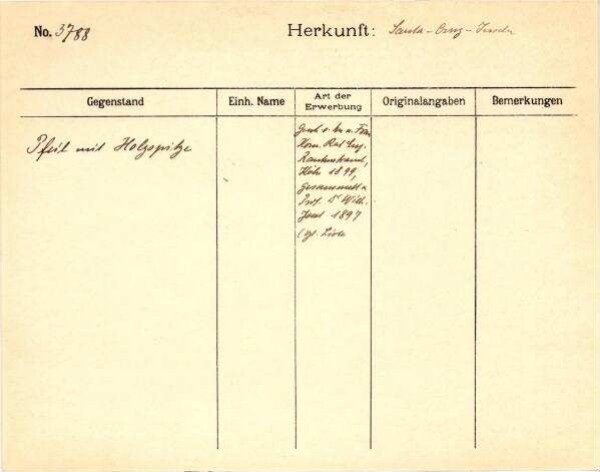 No. 3788
Herkunft: Santa-Cruz-Inseln
Gegenstand
Einh. Name
Art der
Erwerbung
Originalangaben
Bemerkungen
Pfeil mit Holzspitze
Gesch. v. u. Frau
Kom. Rat Eug.
Rautenstrauch,
Köln 1899,
gesammelt v.
Prof. Dr Wilh.
Joest 1897